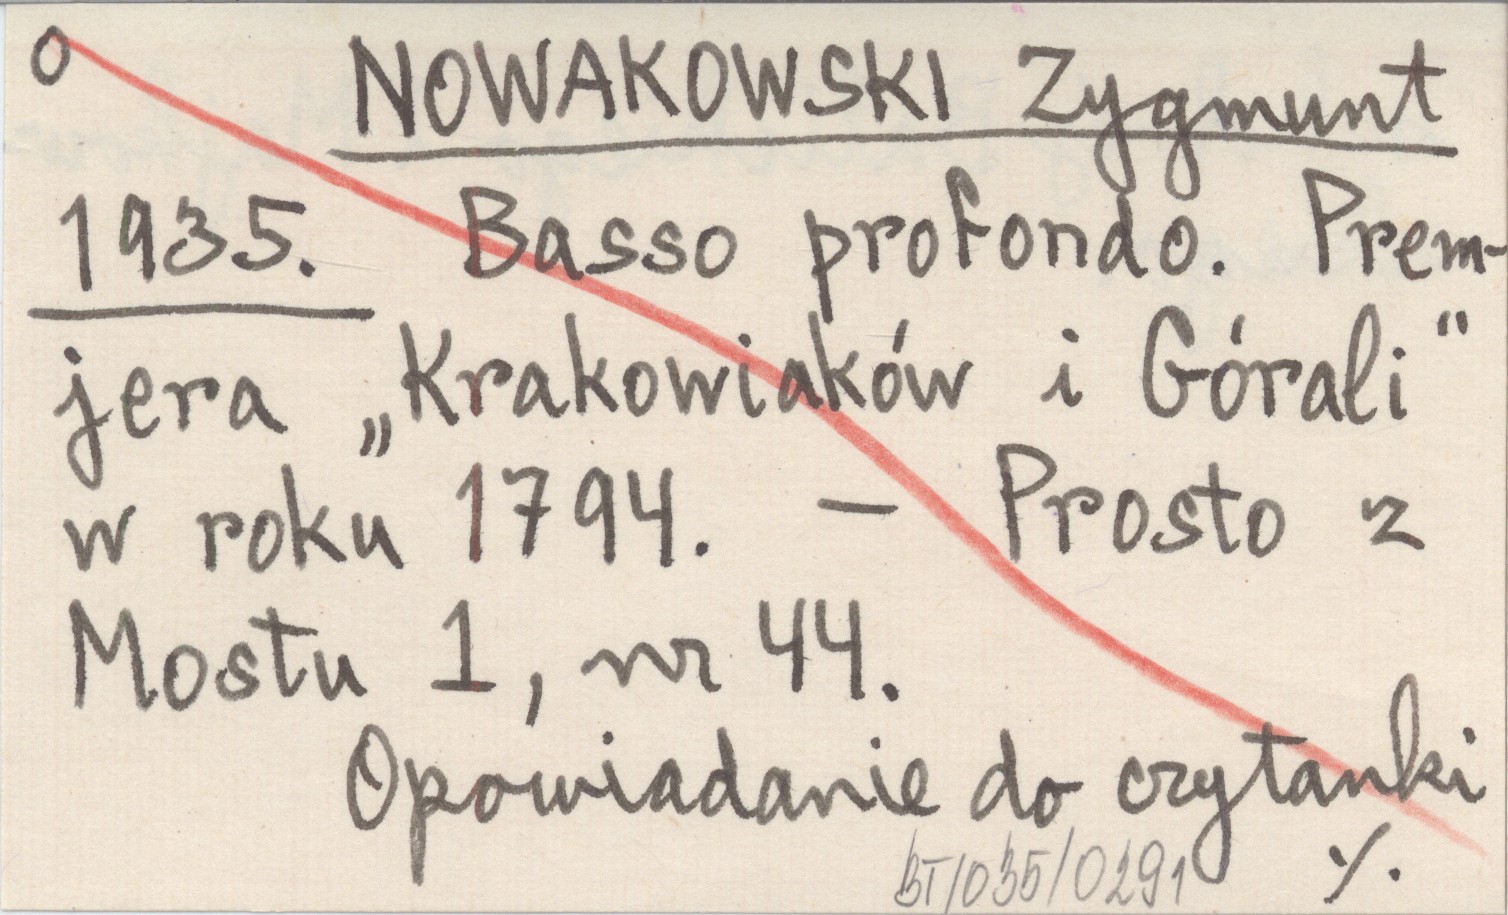 o NOWAKOWSKI Zygmunt
1935. Basso profondo. Prem-
jera „Krakowiaków i Górali"
w roku 1794. — Prosto z
Mostu 1, nr 44.
Opowiadanie do czytanki
BT/035/0291 ./.